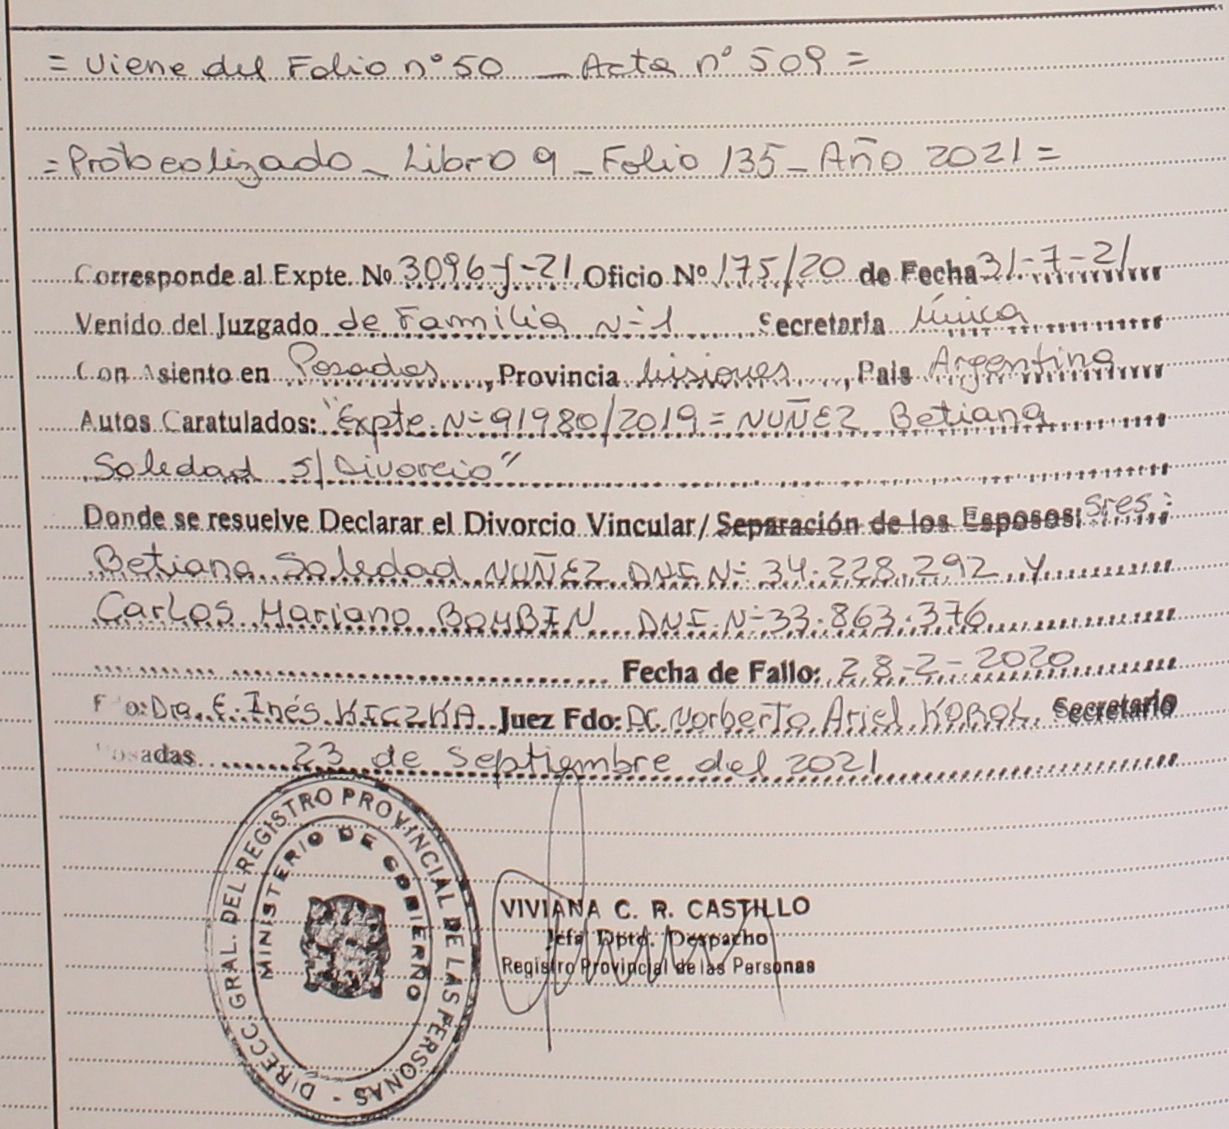 = Viene del Folio n° 50 _ Acta n° 509 =
= Protocolizado _ Libro 9 _ Folio 135 _ Año 2021 =
Corresponde al Expte. No 3096-J-21 Oficio No 175/20 de Fecha 31-7-21
Venido del Juzgado de Familia N-1 Secretaria única
Con Asiento en Posadas, Provincia Misiones, Pais Argentina
Autos Caratulados: "Expte. N- 91980/2019 = NUÑEZ Betiana
Soledad s/ Divorcio"
Donde se resuelve Declarar el Divorcio Vincular/ Separación de los Esposos: Sres:
Betiana Soledad NUÑEZ DNI N- 34.228.292 y
Carlos Mariano BOMBIN DNI N- 33.863.376
Fecha de Fallo: 28-2-2020
Fdo: Dra. E. Inés KICZKA Juez Fdo: Dr. Norberto Ariel KOROL Secretario
Posadas 23 de Septiembre del 2021
DIRECC. GRAL. DEL REGISTRO PROVINCIAL DE LAS PERSONAS -
MINISTERIO DE GOBIERNO
VIVIANA C. R. CASTILLO
Jefa Dpto. Despacho
Registro Provincial de las Personas